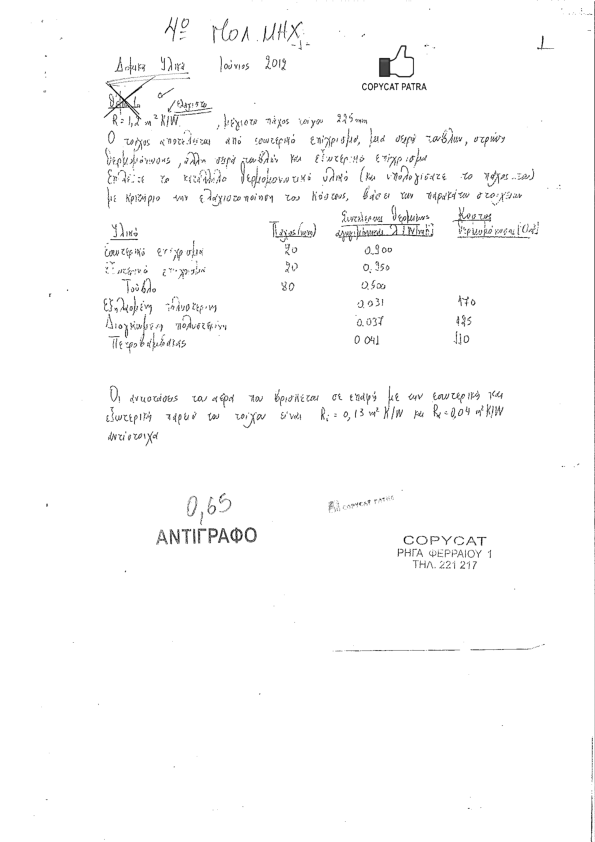 4º ΠΟΛ. ΜΗΧ
-1-
1
Δομικα Υλικα Ιούνιος 2012
COPYCAT PATRA
Θέμα 1
ελαχιστο
R = 1,2 m² K/W , μέγιστο πάχος τοίχου 225mm
Ο τοίχος αποτελείται από εσωτερικό επίχρισμα, μια σειρά τούβλων, στρώση
θερμομόνωσης, άλλη σειρά τουβλών και εξωτερικό επίχρισμα
Επιλέξτε το κατάλληλο θερμομονωτικό υλικό (και υπολογίσατε το πάχος του)
με κριτήριο την ελαχιστοποίηση του κόστους, βάσει των παρακάτω στοιχείων
Υλικό Πάχος (mm) Συντελεστης θερμικης Κοστος
αγωγιμότητας λ (W/mK) θερμομόνωσης
εσωτερικό επιχρισμα 20 0.900
εξωτερικό επιχρισμα 20 0.950
Τούβλο 80 0,500
Εξηλασμένη πολυστερινη 0.031 170
Διογκωμενη πολυστερίνη 0.037 125
Πετροβάμβακας 0 041 110
Οι αντιστάσεις του αέρα που βρισκεται σε επαφή με την εσωτερικη και
εξωτερική παρειά του τοίχου είναι Ri = 0,13 m² K/W και Ra = 0,04 m² K/W
αντίστοιχα
0,65
ΑΝΤΙΓΡΑΦΟ
COPYCAT PATRAS
COPYCAT
ΡΗΓΑ ΦΕΡΡΑΙΟΥ 1
ΤΗΛ. 221 217